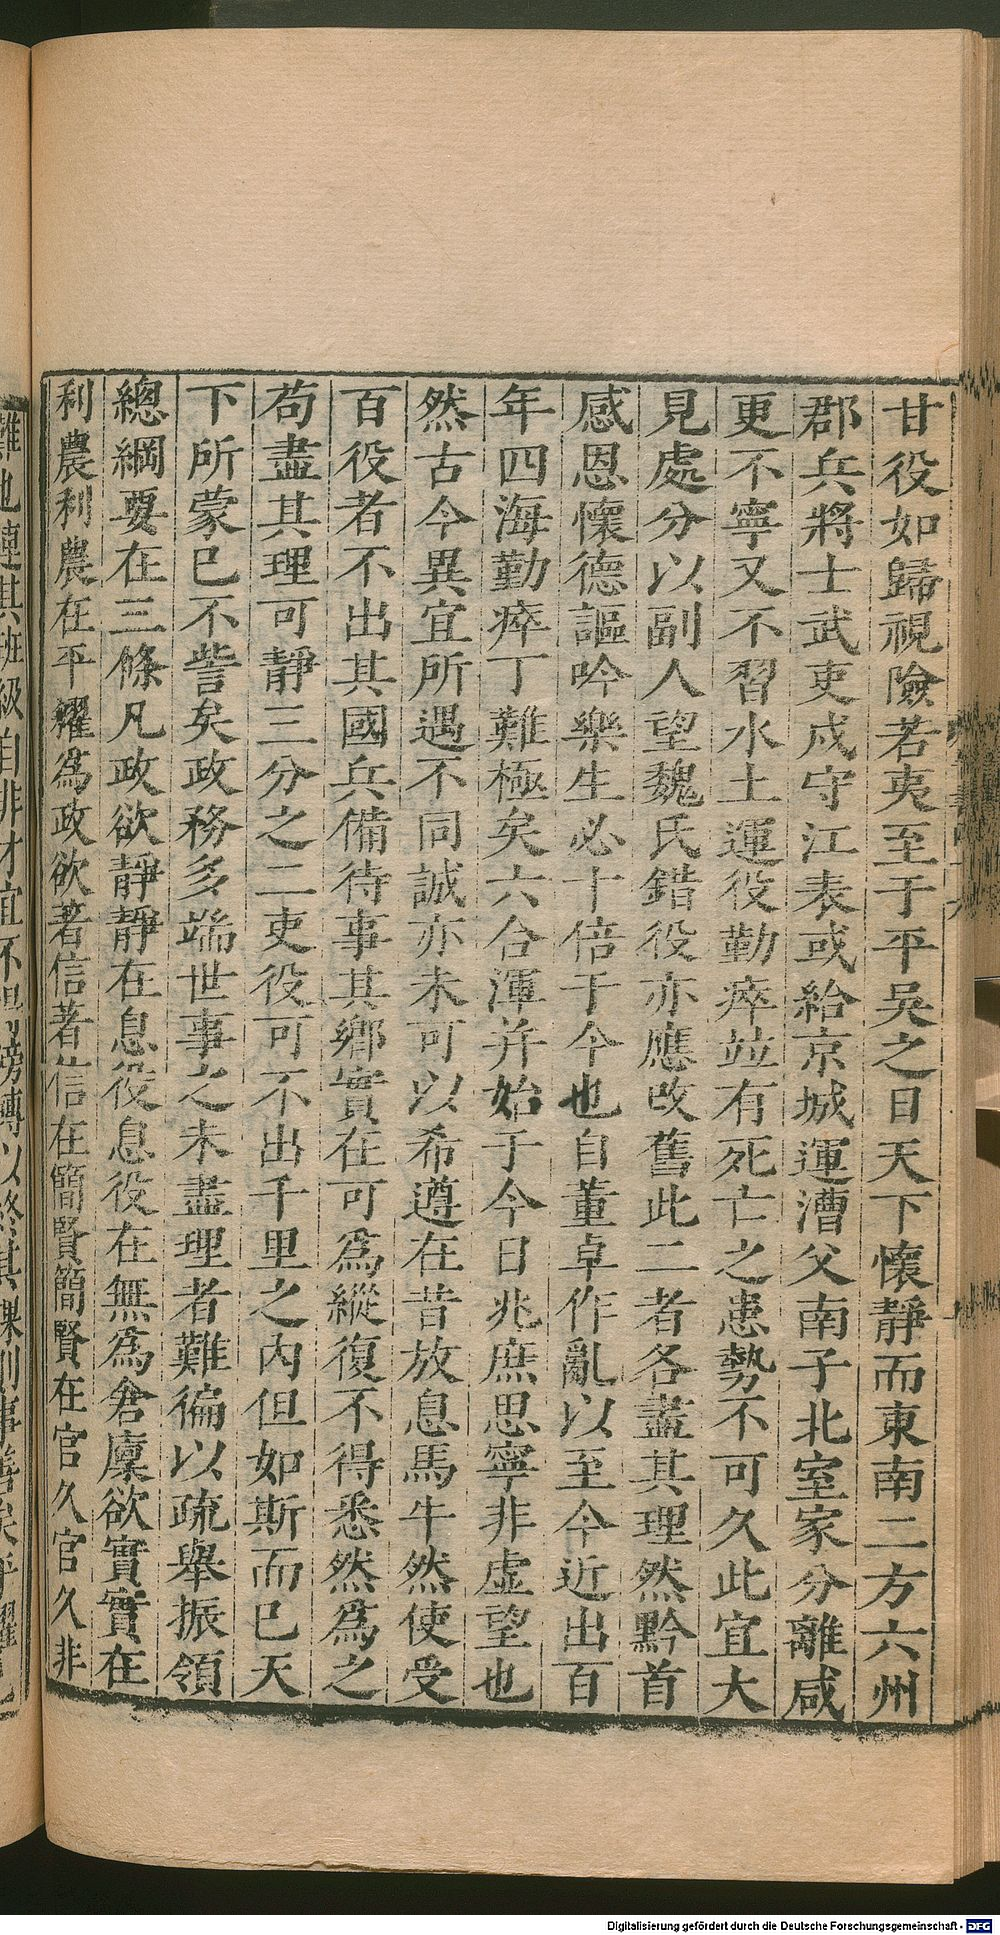 甘役如歸視險若夷至于平吳之日天下懷靜而東南二方六州
郡兵將士武吏戍守江表或給京城運漕父南子北室家分離咸
更不寧又不習水土運役勤瘁竝有死亡之患勢不可久此宜大
見處分以副人望魏氏錯役亦應改舊此二者各盡其理然黔首
感恩懷德謳吟樂生必十倍于今也自董卓作亂以至今近出百
年四海勤瘁丁難極矣六合渾并始于今日兆庶思寧非虛望也
然古今異宜所遇不同誠亦未可以希遵在昔放息馬牛然使受
百役者不出其國兵備待事其鄉實在可爲縱復不得悉然爲之
苟盡其理可靜三分之二吏役可不出千里之內但如斯而已天
下所蒙已不訾矣政務多端世事之未盡理者難徧以疏舉振領
總綱要在三條凡政欲靜靜在息役息役在無爲倉廩欲實實在
利農利農在平糴爲政欲著信著信在簡賢簡賢在官久官久非
Digitalisierung gefördert durch die Deutsche Forschungsgemeinschaft - DFG